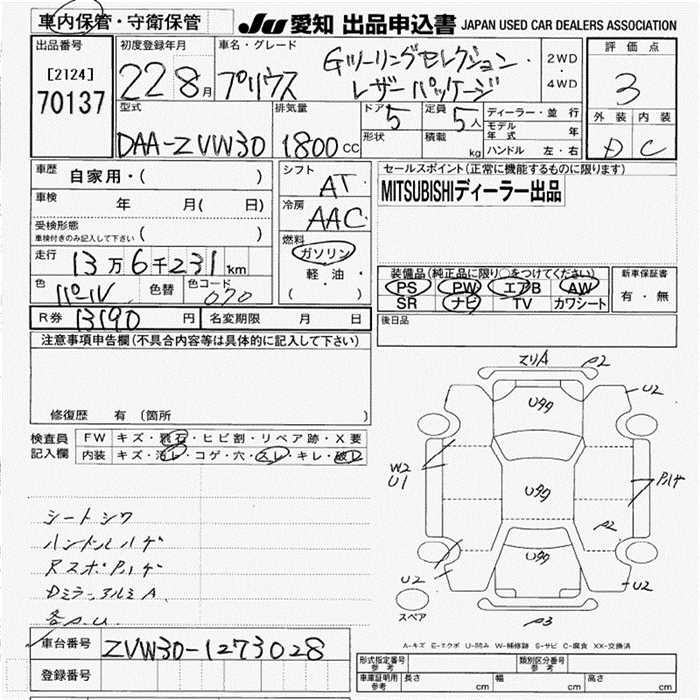 車内保管・守衛保管
JU 愛知 出品申込書 JAPAN USED CAR DEALERS ASSOCIATION
出品番号
[2124]
70137
初度登録年月
22 8月
車名・グレード
プリウス
Gツーリングセレクション
レザーパッケージ
2WD
・
4WD
評価点
3
外装 内装
D C
型式
DAA-ZVW30
排気量
1800 CC
ドア 5
定員 5人
形状
積載 kg
ディーラー・並行
モデル年式 年
ハンドル 左・右
車歴 自家用・( )
車検 年 月( 日)
受検形態
車検付きのみ記入して下さい ( )
走行
13万6千231km
色 パール 色替 色コード 070
シフト
AT
冷房
AAC
燃料
ガソリン
軽油・
( ・ )
セールスポイント(正常に機能するものに限ります)
MITSUBISHIディーラー出品
装備品(純正品に限り○をつけてください)
PS PW エアB AW
SR ナビ TV カワシート
新車保証書
有・無
後日品
R券 13190 円 名変期限 月 日
注意事項申告欄(不具合内容等は具体的に記入して下さい)
修復歴 有(箇所 )
検査員記入欄
FW キズ・飛石・ヒビ割・リペア跡・X要
内装 キズ・汚レ・コゲ・穴・スレ・キレ・破レ
シートシワ
ハンドルハゲ
RスポPハゲ
DミラーアルミA
各A.U.
スリA P2
U2
Uタタ
W2
U1
Uタタ
Pハゲ
P2
Uタタ
U2
U2
P3
スペア
A-キズ E-エクボ U-凹み W-補修跡 S-サビ C-腐食 XX-交換済
車台番号 ZVW30-1273028
登録番号
形式指定番号 参考
類別区分番号 参考
車庫証明用 参考 長さ cm 幅 cm 高さ cm